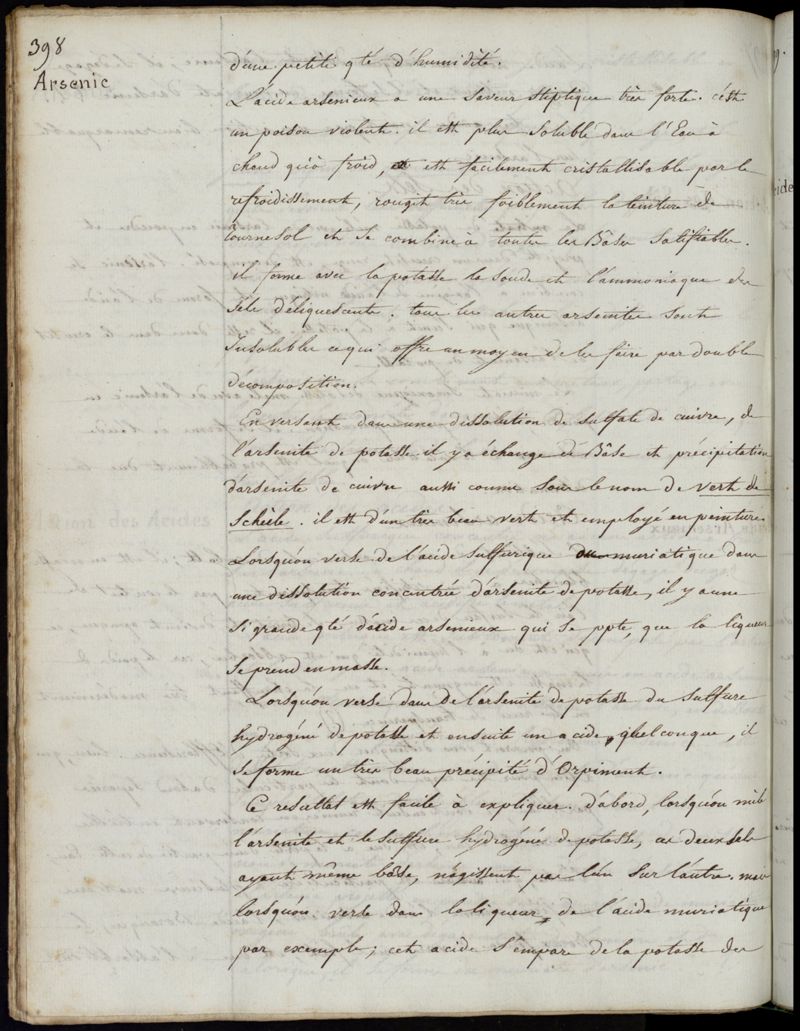 398
Arsenic
d'une petite qté d'humidité.
L'acide arsenieux a une saveur stiptique très forte. c'est
un poison violent. il est plus soluble dans l'Eau à
chaud qu'à froid, est facilement cristallisable par le
refroidissement, rougit très foiblement la teinture de
tournesol et se combine à toutes les Bâses salifiables.
il forme avec la potasse la soude et l'ammoniaque des
sels déliquescents. tous les autres arsenites sont
Insolubles ce qui offre un moyen de les faire par double
décomposition.
En versant dans une dissolution de sulfate de cuivre, de
l'arsenite de potasse il y a échange de Bâse et précipitation
d'arsenite de cuivre aussi connu sous le nom de vert de
Schèele. il est d'un très beau vert et employé en peinture.
Lorsqu'on verse de l'acide sulfurique ou muriatique dans
une dissolution concentrée d'arsenite de potasse, il y a une
si grande qté d'acide arsenieux qui se ppte, que la liqueur
se prend en masse.
Lorsqu'on verse dans de l'arsenite de potasse du sulfure
hydrogéné de potasse et ensuite un acide, quelconque, il
se forme un très beau précipité d'Orpiment.
Ce resultat est facile à expliquer. d'abord, lorsqu'on mêle
l'arsenite et le sulfure hydrogéné de potasse, ces deux sels
ayant même bâse, n'agissent pas l'un sur l'autre. mais
lorsqu'on verse dans la liqueur, de l'acide muriatique
par exemple; cet acide s'empare de la potasse des